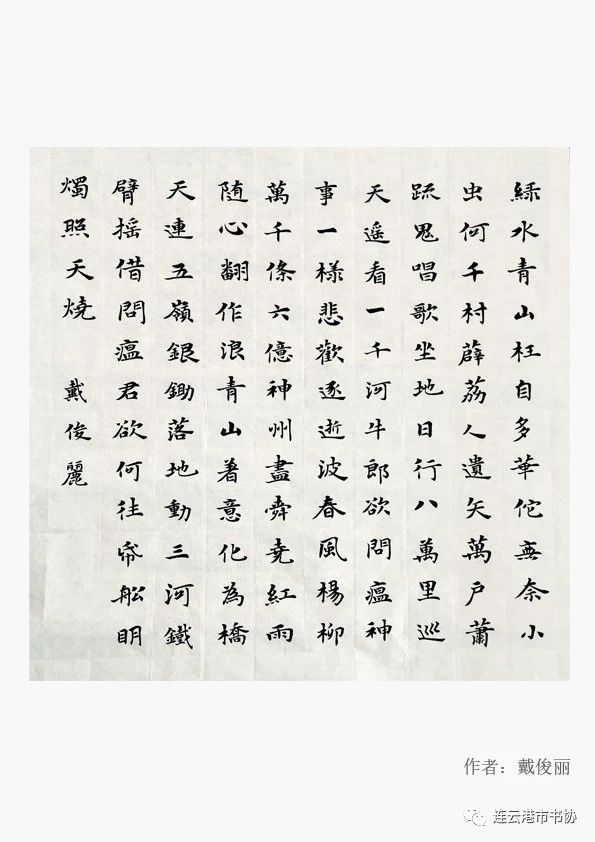 綠水青山枉自多華佗無奈小
虫何千村薜荔人遺矢萬户蕭
疏鬼唱歌坐地日行八萬里巡
天遥看一千河牛郎欲問瘟神
事一樣悲歡逐逝波春風楊柳
萬千條六億神州盡舜堯紅雨
随心翻作浪青山著意化為橋
天連五嶺銀鋤落地動三河鐵
臂摇借問瘟君欲何往帋船明
燭照天燒 戴俊麗
作者：戴俊丽
连云港市书协